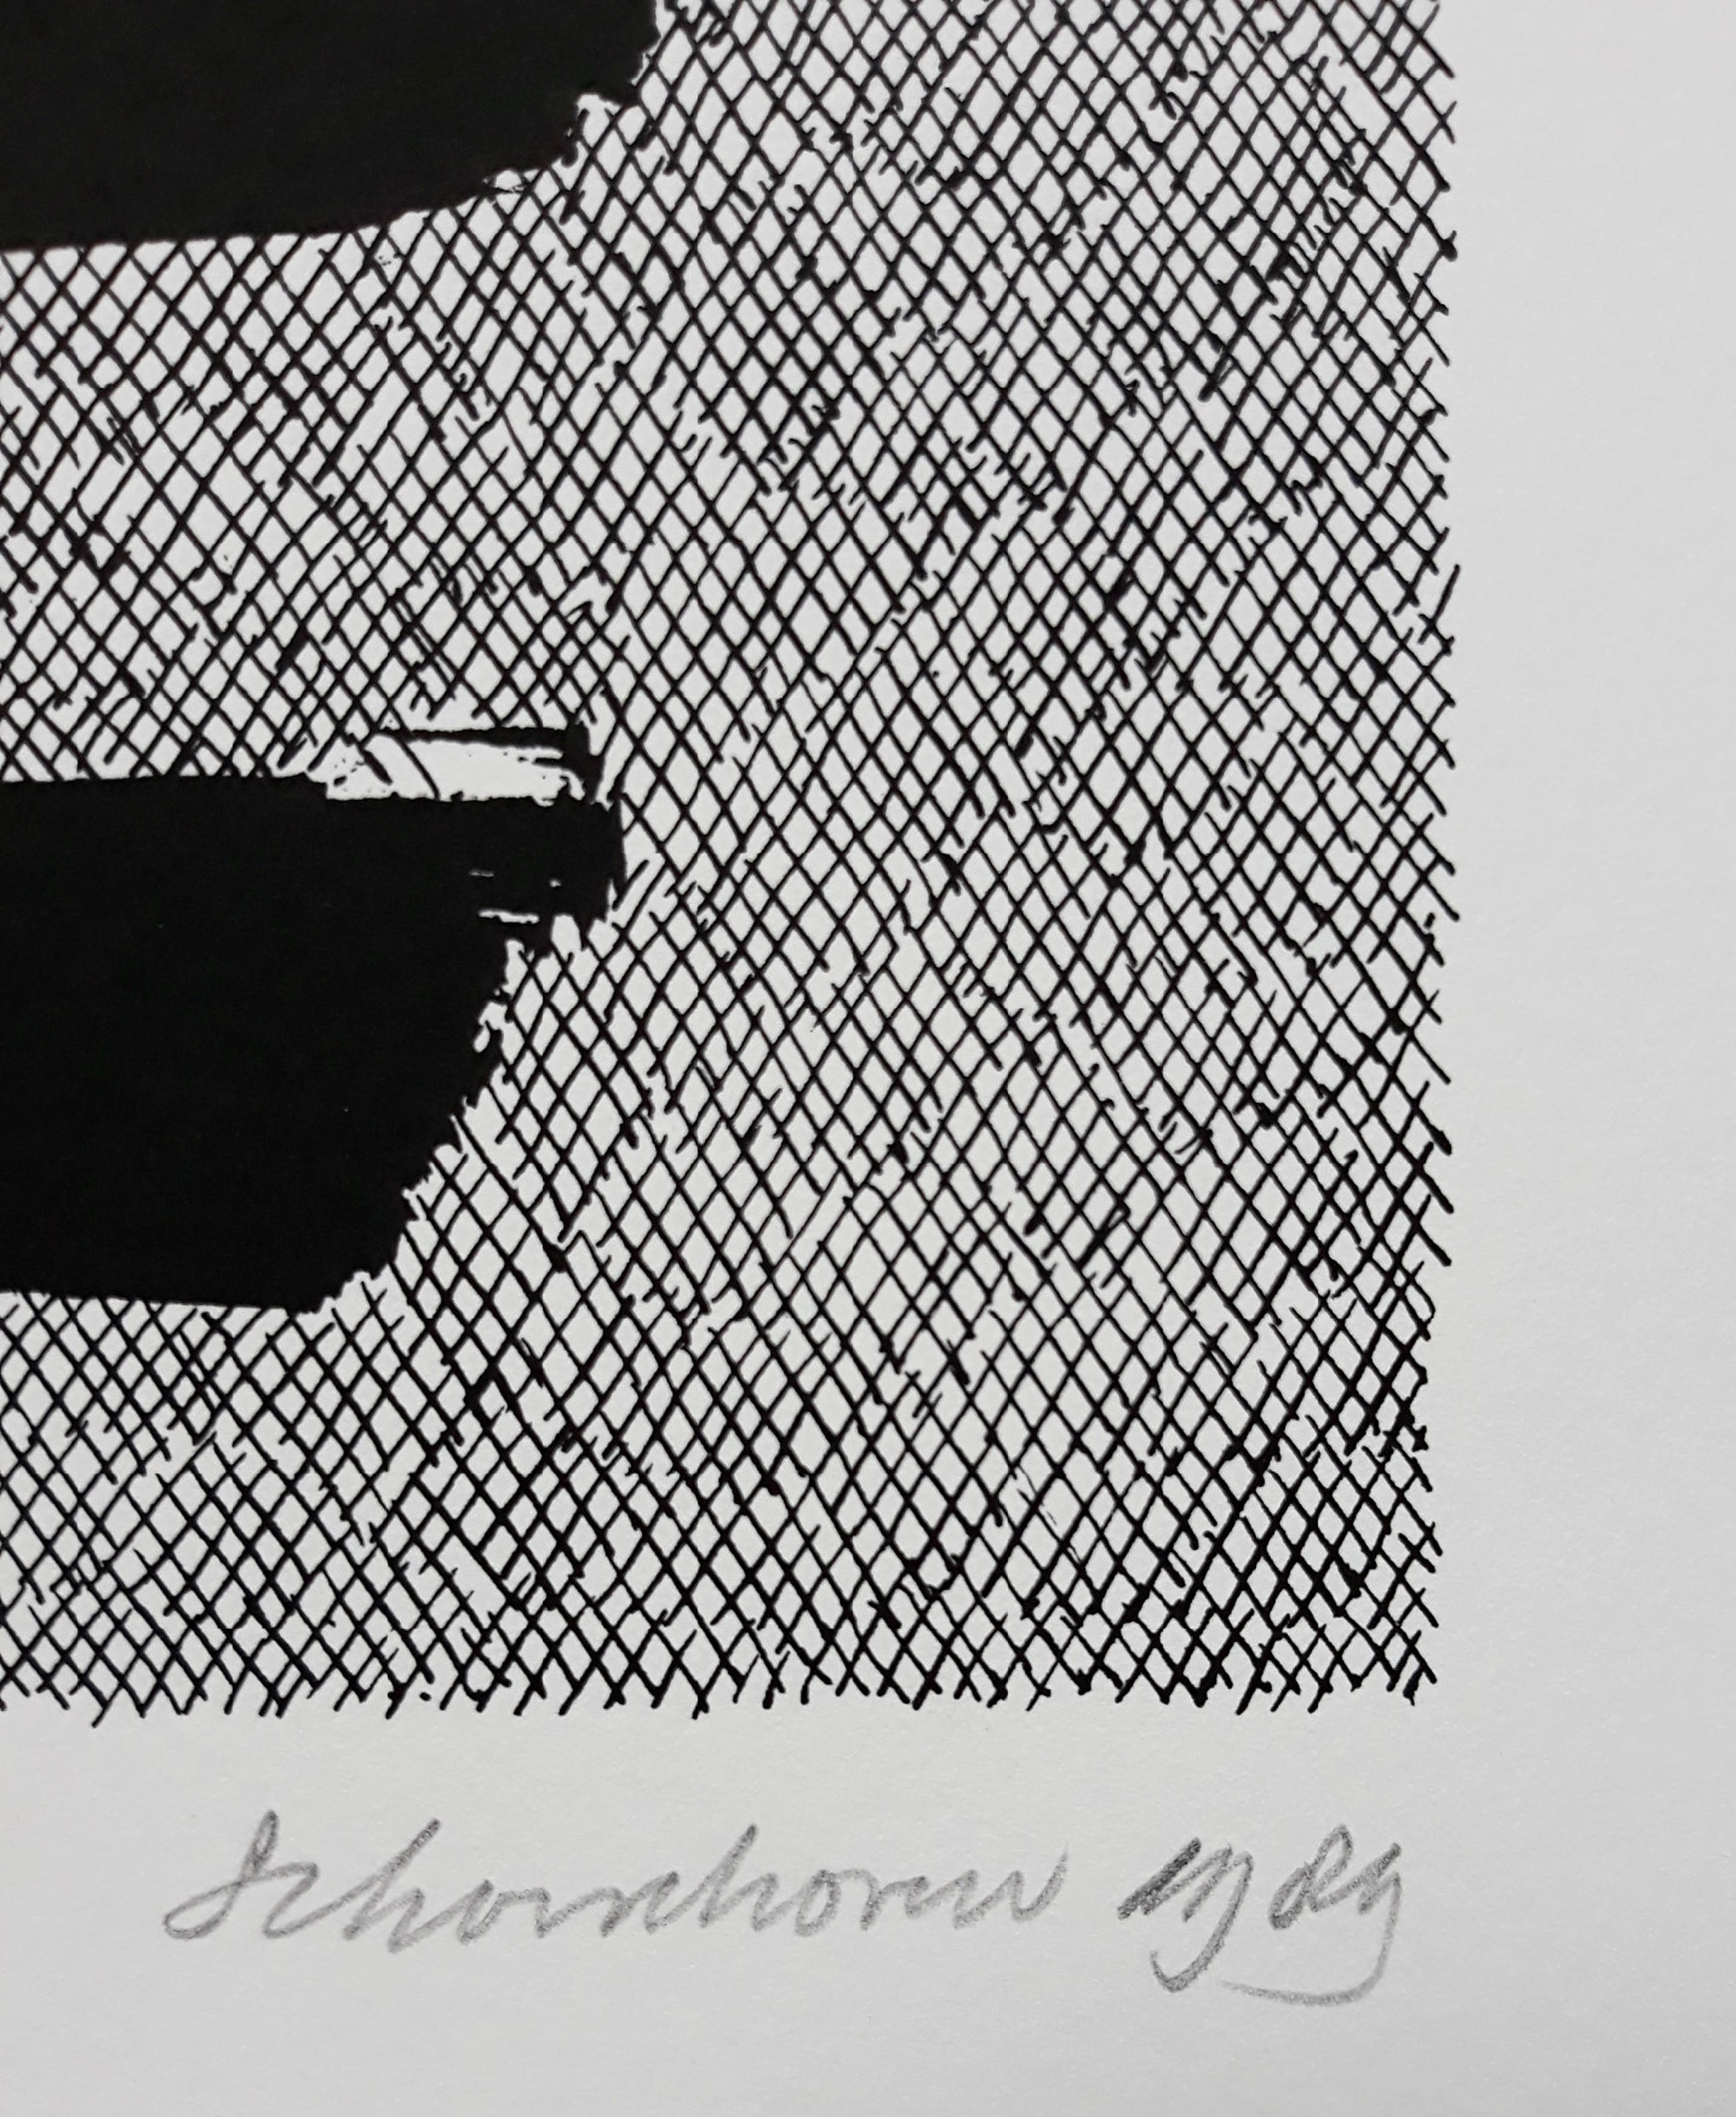 Schoonhoven 1989